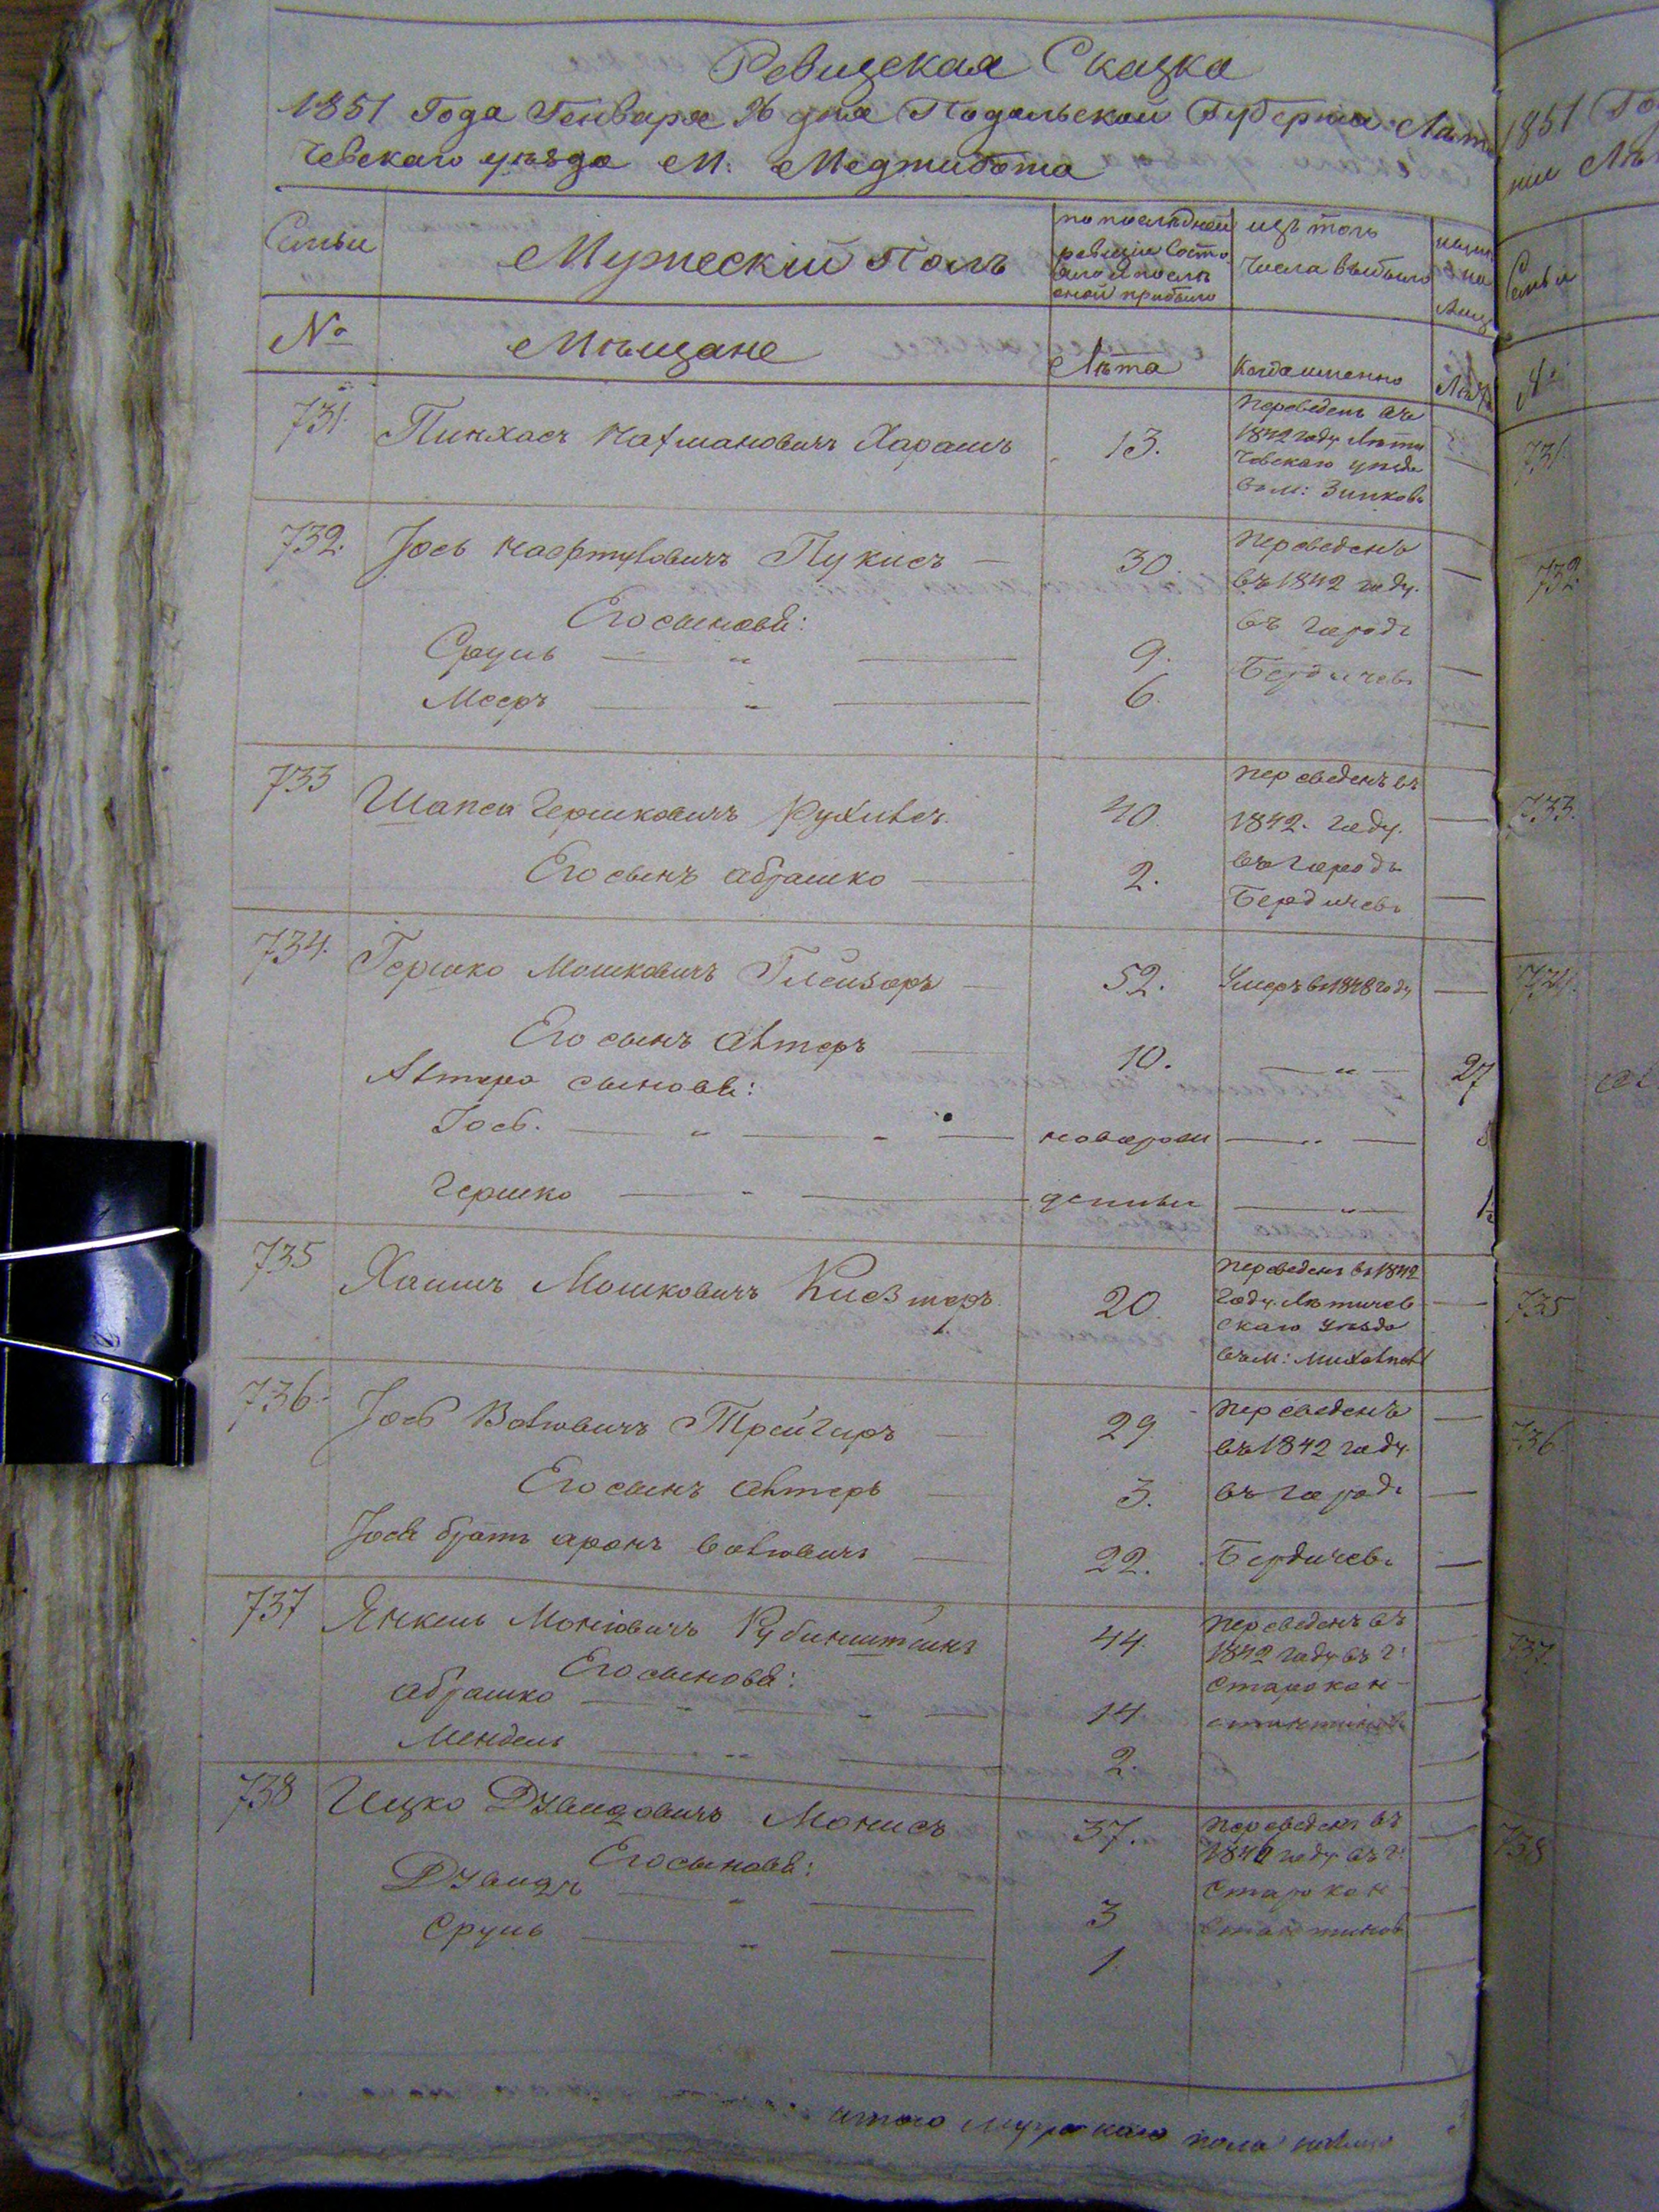 Ревизская Сказка
1851 Года Генваря 26 дня Подольской Губерніи Лати
чевскаго уѣзда М: Меджибожа
Семьи
Мужескій Полъ
по послѣдней
ревизіи состо
яло и послѣ
оной прибыло
изъ того
числа выбыло
нынѣ
на
лицо
№
Мѣщане
Лѣта
Когда именно
Лѣта
731. Пинхасъ Нахмановичъ Харашъ 13.
Переведенъ въ
1842 году Лети
чевскаго уѣзда
въ м: Зиньковъ
732. Іось Нафтуловичъ Пукисъ — 30.
Переведенъ
въ 1842 году.
въ городъ
Бердичевъ
Его сыновья:
Сруль — " — 9.
Мееръ — " — 6.
733 Шапса Гершковичъ Рухлисъ 40.
переведенъ въ
1842. году.
въ городъ
Бердичевъ
Его сынъ Абрашко — 2.
734. Гершко Мошковичъ Глейзеръ — 52. Умеръ въ 1848 году —
Его сынъ Алтеръ — 10. — " — 27
Алтера сыновья:
Іось. — " — " — новорож — " —
Гершко — " — денные — " —
735 Хаимъ Мошковичъ Киезмеръ. 20.
переведенъ въ 1842
году. Летичев
скаго уѣзда
въ м: Михалполь
736. Іось Волковичъ Трейгеръ — 29.
переведенъ
въ 1842 году.
въ городъ
Бердичевъ
Его сынъ Алтеръ — 3.
Іося братъ Аронъ Волковичъ — 22.
737 Янкель Моніовичъ Рубинштейнъ 44.
переведенъ въ
1842 году въ г:
Старокон-
стантиновъ
Его сыновья:
Абрашко — " — " — 14
Мендель — " — 2.
738 Ицко Дувидовичъ Монисъ 37.
переведенъ въ
1842 году въ г:
Старокон
стантиновъ
Его сыновья:
Дувидъ — " — 3
Сруль — " — 1.
итого мужескаго пола налицо